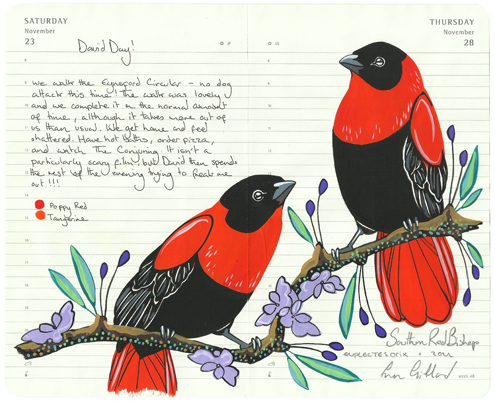 SATURDAY
November
23
David Day!
we walk the Eynsford Circular – no dog
attack this time! The walk was lovely
and we complete it in the normal amount
of time, although it takes more out of
us than usual. We get home and feel
shattered. Have hot baths, order pizza,
and watch The Conjuring. It isn't a
particularly scary film but David then spends
the rest of the evening trying to freak me
out!!!
Poppy Red
Tangerine
THURSDAY
November
28
Southern Red Bishops
EUPLECTES ORIX